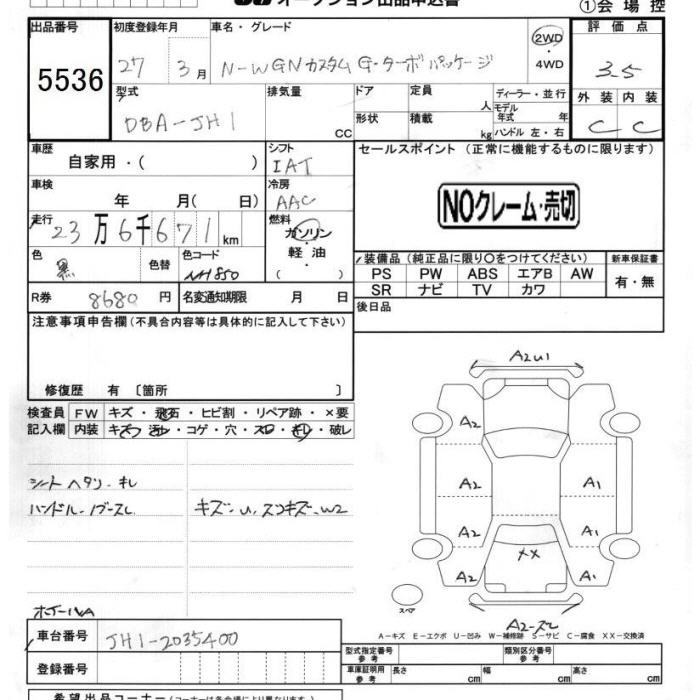 オークション出品申込書
①会場控
出品番号
5536
初度登録年月
27 3月
車名・グレード
N-WGNカスタム G・ターボパッケージ
2WD
・
4WD
評価点
3.5
外装 内装
C C
型式
DBA-JH1
排気量
CC
ドア
形状
定員
人
積載
kg
ディーラー・並行
モデル
年式 年
ハンドル 左・右
車歴
自家用・( )
シフト
IAT
車検
年 月( 日)
冷房
AAC
走行
23万6千671km
燃料
ガソリン
・
軽油
色
黒
色替
色コード
NH850
R券 8680円
名変通知期限 月 日
セールスポイント (正常に機能するものに限ります)
NOクレーム・売切
装備品 (純正品に限り〇をつけてください)
PS PW ABS エアB AW
SR ナビ TV カワ
新車保証書
有・無
後日品
注意事項申告欄(不具合内容等は具体的に記入して下さい)
修復歴 有 〔箇所 〕
検査員
記入欄
FW キズ・飛石・ヒビ割・リペア跡・×要
内装 キズ・汚レ・コゲ・穴・スレ・キレ・破レ
シートヘタリ・キレ
ハンドル・ノブスレ
キズ・U、スコキズ・W2
A2U1
A2
A2
A2
A2
A1
A1
A1
××
スペア
A2-スレ
A-キズ E-エクボ U-凹み W-補修跡 S-サビ C-腐食 XX-交換済
車台番号
JH1-2035400
登録番号
型式指定番号
参考
類別区分番号
参考
車庫証明用
参考
長さ cm
幅 cm
高さ cm
希望出品コーナー(コーナーは各会場により異なります。)